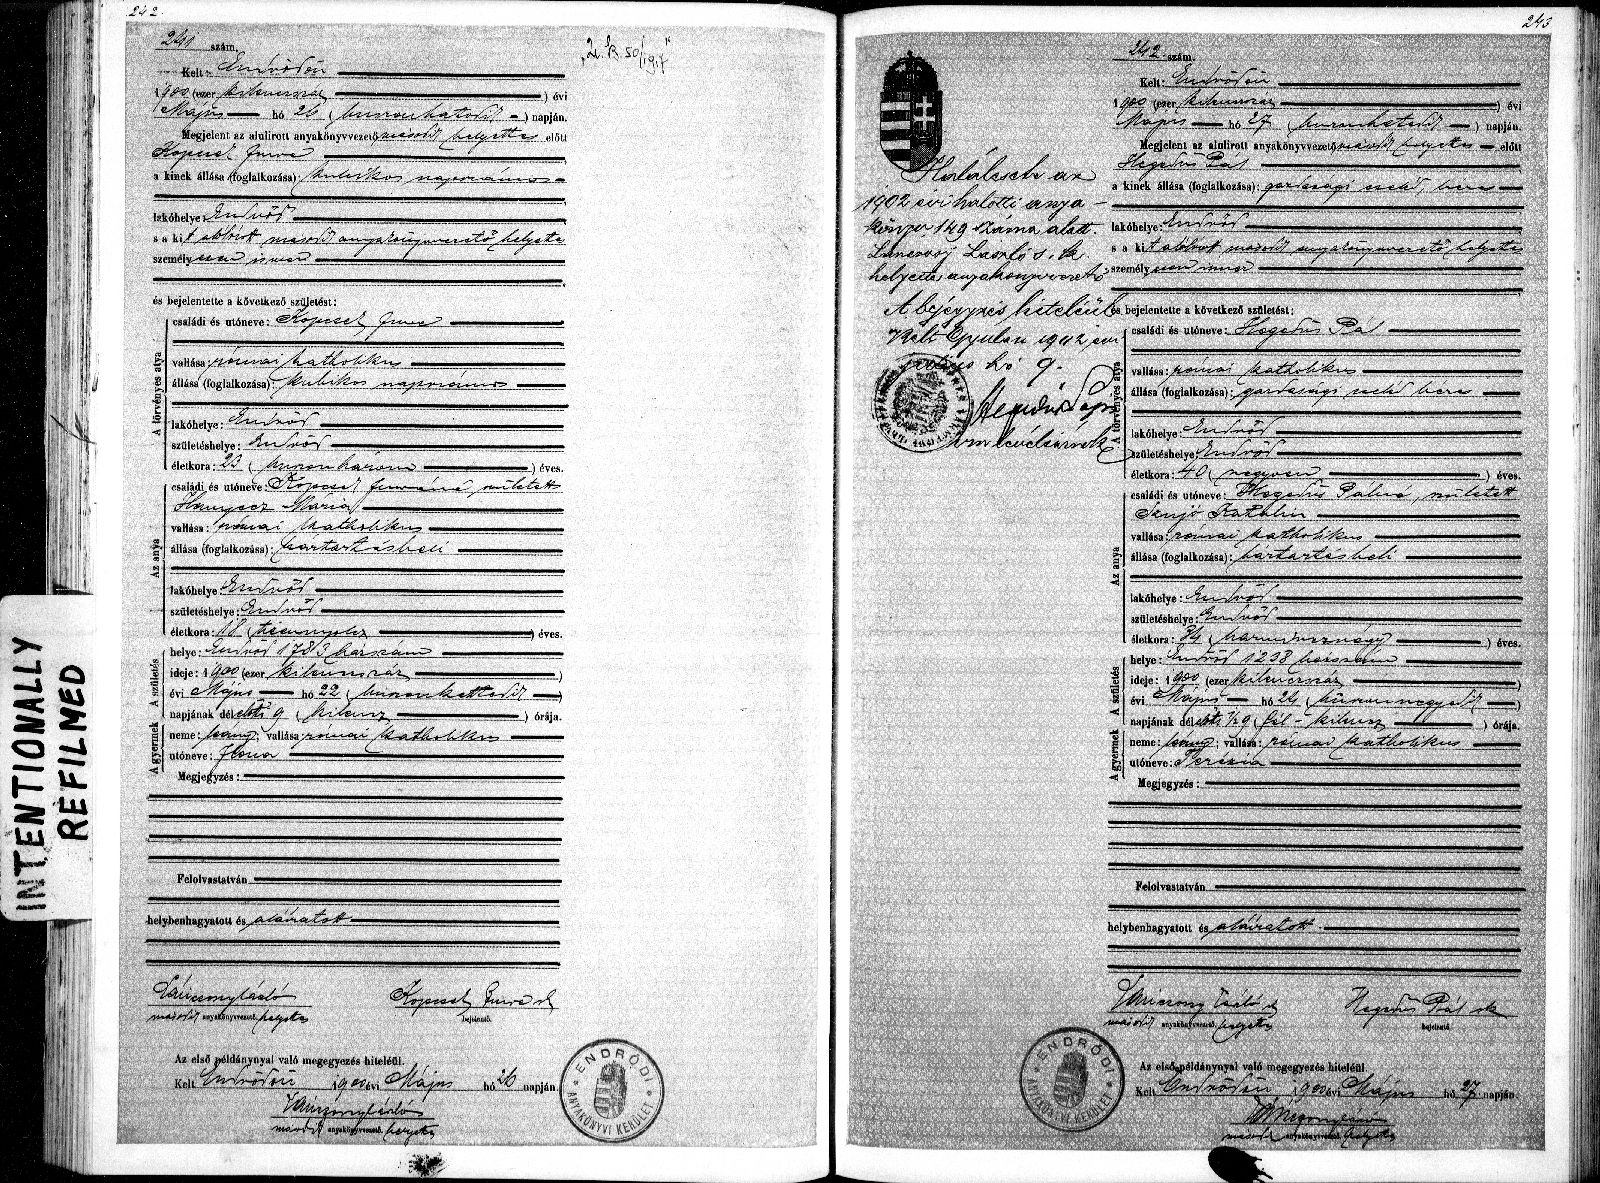 242
241 szám.
„2. B. 50/1917"
Kelt: Endrődön
1900 (ezer kilenczszáz) évi
Május hó 26 (huszonhatodik) napján.
Megjelent az alulirott anyakönyvvezető másodk helyettes előtt
Kopcsek Imre
a kinek állása (foglalkozása): kubikos napszámos
lakóhelye: Endrőd
s a kit alólirott másodk anyakönyvvezető helyettes
személyesen ismer
és bejelentette a következő születést:
A törvényes atya
családi és utóneve: Kopcsek Imre
vallása: római katholikus
állása (foglalkozása): kubikos napszámos
lakóhelye: Endrőd
születéshelye: Endrőd
életkora: 23 (huszonhárom) éves.
Az anya
családi és utóneve: Kopcsek Imréné született
Hanyecz Mária
vallása: római katholikus
állása (foglalkozása): háztartásbeli
lakóhelye: Endrőd
születéshelye: Endrőd
életkora: 18 (tizennyolcz) éves.
A születés
helye: Endrőd 1783 házszám
ideje: 1900 (ezer kilenczszáz)
évi Május hó 22 (huszonkettedik)
napjának délelőtti 9 (kilencz) órája.
A gyermek
neme: leány; vallása: római katholikus
utóneve: Ilona
Megjegyzés:
Felolvastatván
helybenhagyatott és aláiratott
Vánicsony László
másodk anyakönyvvezető. helyettes
Kopcsek Imre sk
bejelentő.
Az első példánynyal való megegyezés hiteléül.
Kelt Endrődön 1900 évi Május hó 26 napján.
másodk anyakönyvvezető. helyettes
ENDRŐDI ANYAKÖNYVI KERÜLET
INTENTIONALLY
REFILMED
243
Halálesete az
1902 évi halotti anya-
könyv 149 száma alatt.
László s. k.
helyettes anyakönyvvezető
A bejegyzés hiteléül
Kelt Gyulán 1902 évi
hó 9.
242 szám.
Kelt: Endrődön
1900 (ezer kilenczszáz) évi
Május hó 27 (huszonhetedik) napján.
Megjelent az alulirott anyakönyvvezető másodk helyettes előtt
Hegedűs Pál
a kinek állása (foglalkozása): gazdasági cseléd, béres
lakóhelye: Endrőd
s a kit alólirott másodk anyakönyvvezető helyettes
személyesen ismer
és bejelentette a következő születést:
A törvényes atya
családi és utóneve: Hegedűs Pál
vallása: római katholikus
állása (foglalkozása): gazdasági cseléd béres
lakóhelye: Endrőd
születéshelye: Endrőd
életkora: 40 (negyven) éves.
Az anya
családi és utóneve: Hegedűs Pálné, született
Katalin
vallása: római katholikus
állása (foglalkozása): háztartásbeli
lakóhelye: Endrőd
születéshelye: Endrőd
életkora: 34 (harmincznégy) éves.
A születés
helye: Endrőd 1238 házszám
ideje: 1900 (ezer kilenczszáz)
évi Május hó 24 (huszonnegyedik)
napjának délelőtti 1/2 9 (fél-kilencz) órája.
A gyermek
neme: leány; vallása: római katholikus
utóneve: Terézia
Megjegyzés:
Felolvastatván
helybenhagyatott és aláiratott
másodk anyakönyvvezető. helyettes
Hegedűs Pál sk
bejelentő
Az első példánynyal való megegyezés hiteléül
Kelt Endrődön 1900 évi Május hó 27 napján
másodk anyakönyvvezető. helyettes
ENDRŐDI ANYAKÖNYVI KERÜLET